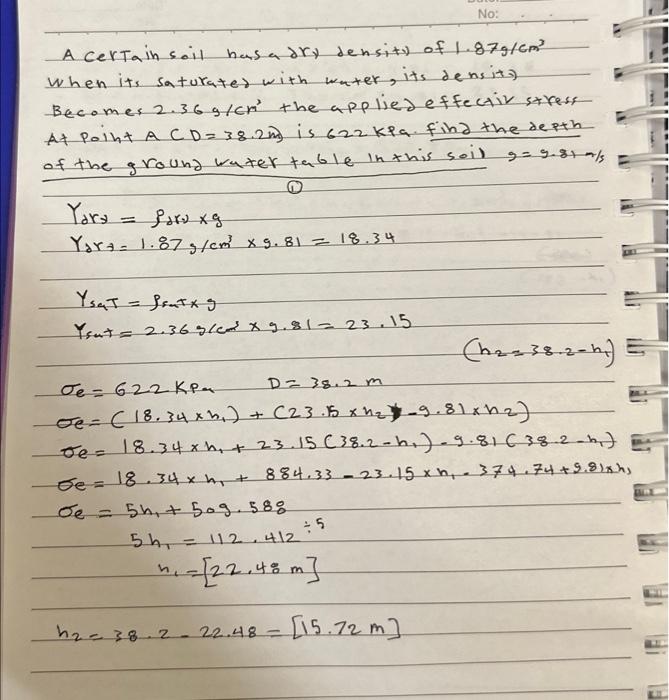 No:
A certain soil has a dry density of 1.87g/cm³
When its saturated with water, its density
Becomes 2.36 g/cm³ the applied effectiv stress
At Point A (D=38.2m) is 622 kPa. find the depth
of the ground water table in this soil g=9.81 m/s
①
γdry = ρdry x g
γdry = 1.87 g/cm³ x 9.81 = 18.34
γsaT = ρsat x g
γsat = 2.36 g/cm³ x 9.81 = 23.15
(h₂=38.2-h₁)
σe = 622 KPa D= 38.2 m
σe = (18.34 x h₁) + (23.15 x h₂ - 9.81 x h₂)
σe = 18.34 x h₁ + 23.15 (38.2-h₁) - 9.81 (38.2-h₁)
σe = 18.34 x h₁ + 884.33 - 23.15 x h₁ - 374.74 + 9.81 x h₁
σe = 5h₁ + 509.588
5h₁ = 112.412 ÷5
h₁ = [22.48 m]
h₂ = 38.2 - 22.48 = [15.72 m]